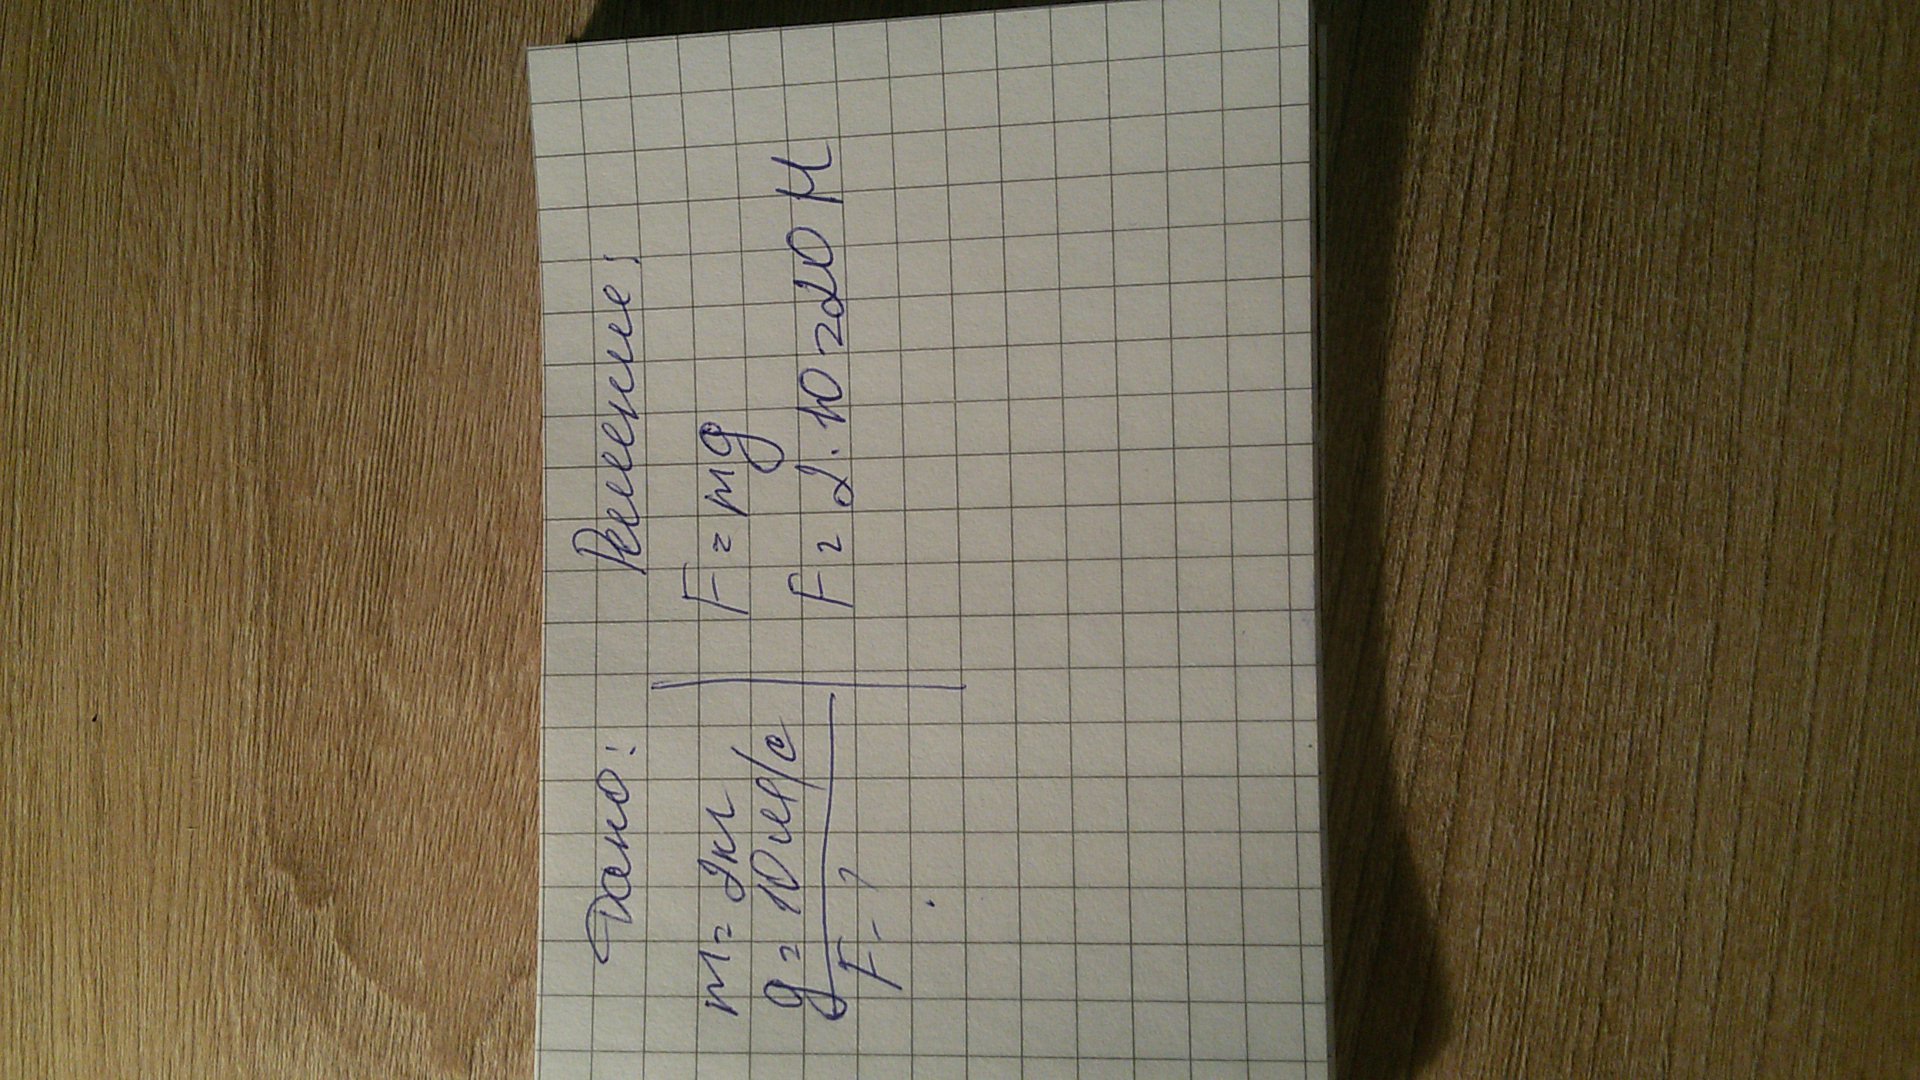 Дано: Решение:
m = 2кг F = mg
g = 10 м/с F = 2 · 10 = 20 Н
F - ?